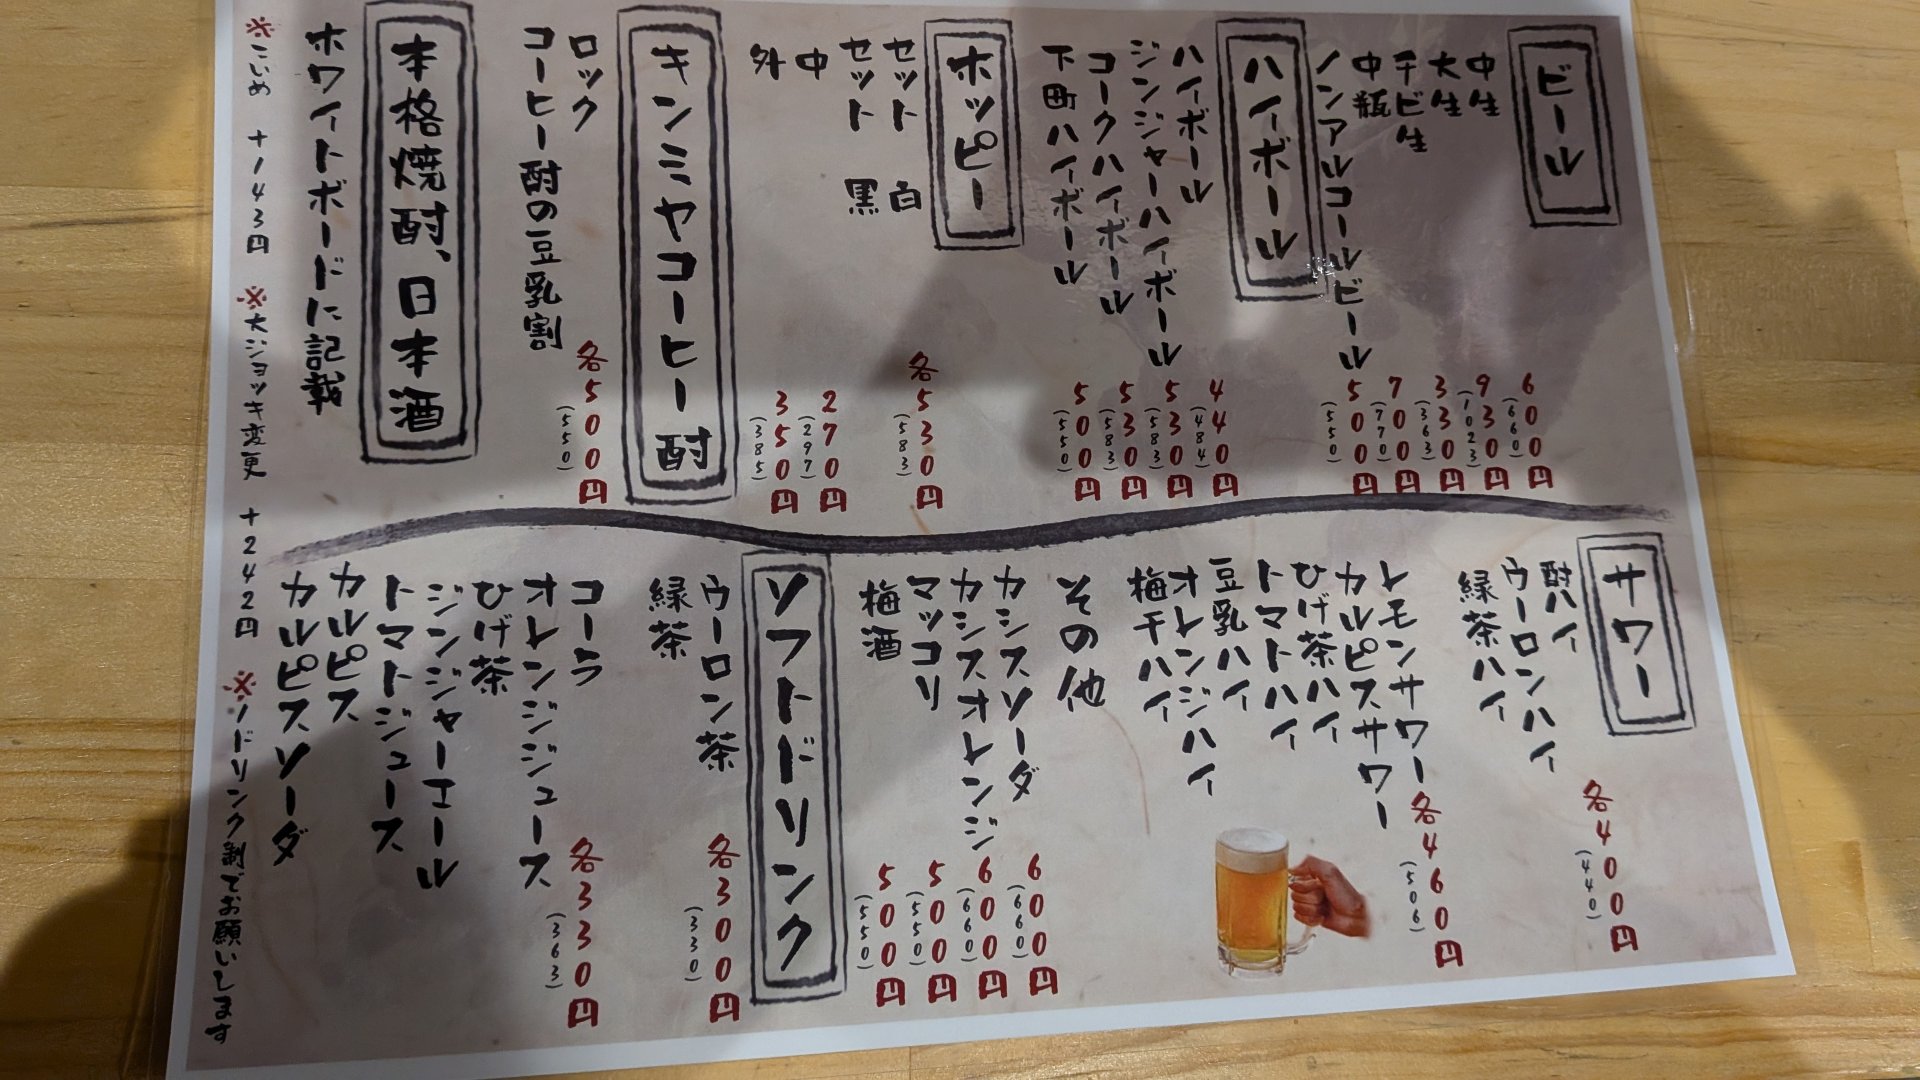 ビール
中生 600円
(660)
大生 930円
(1023)
チビ生 330円
(363)
中瓶 700円
(770)
ノンアルコールビール 500円
(550)
ハイボール
ハイボール 440円
(484)
ジンジャーハイボール 530円
(583)
コークハイボール 530円
(583)
下町ハイボール 500円
(550)
ホッピー
セット 白 各530円
(583)
セット 黒
中 270円
(297)
外 350円
(385)
キンミヤコーヒー酎
ロック 各500円
(550)
コーヒー酎の豆乳割
本格焼酎、日本酒
ホワイトボードに記載
サワー
酎ハイ 各400円
(440)
ウーロンハイ
緑茶ハイ
レモンサワー 各460円
(506)
カルピスサワー
ひげ茶ハイ
トマトハイ
豆乳ハイ
オレンジハイ
梅干ハイ
その他
カシスソーダ 600円
(660)
カシスオレンジ 600円
(660)
マッコリ 500円
(550)
梅酒 500円
(550)
ソフトドリンク
ウーロン茶 各300円
(330)
緑茶
コーラ 各330円
(363)
オレンジジュース
ひげ茶
ジンジャーエール
トマトジュース
カルピス
カルピスソーダ
※こいめ +143円 ※大ジョッキ変更 +242円 ※1ドリンク制でお願いします